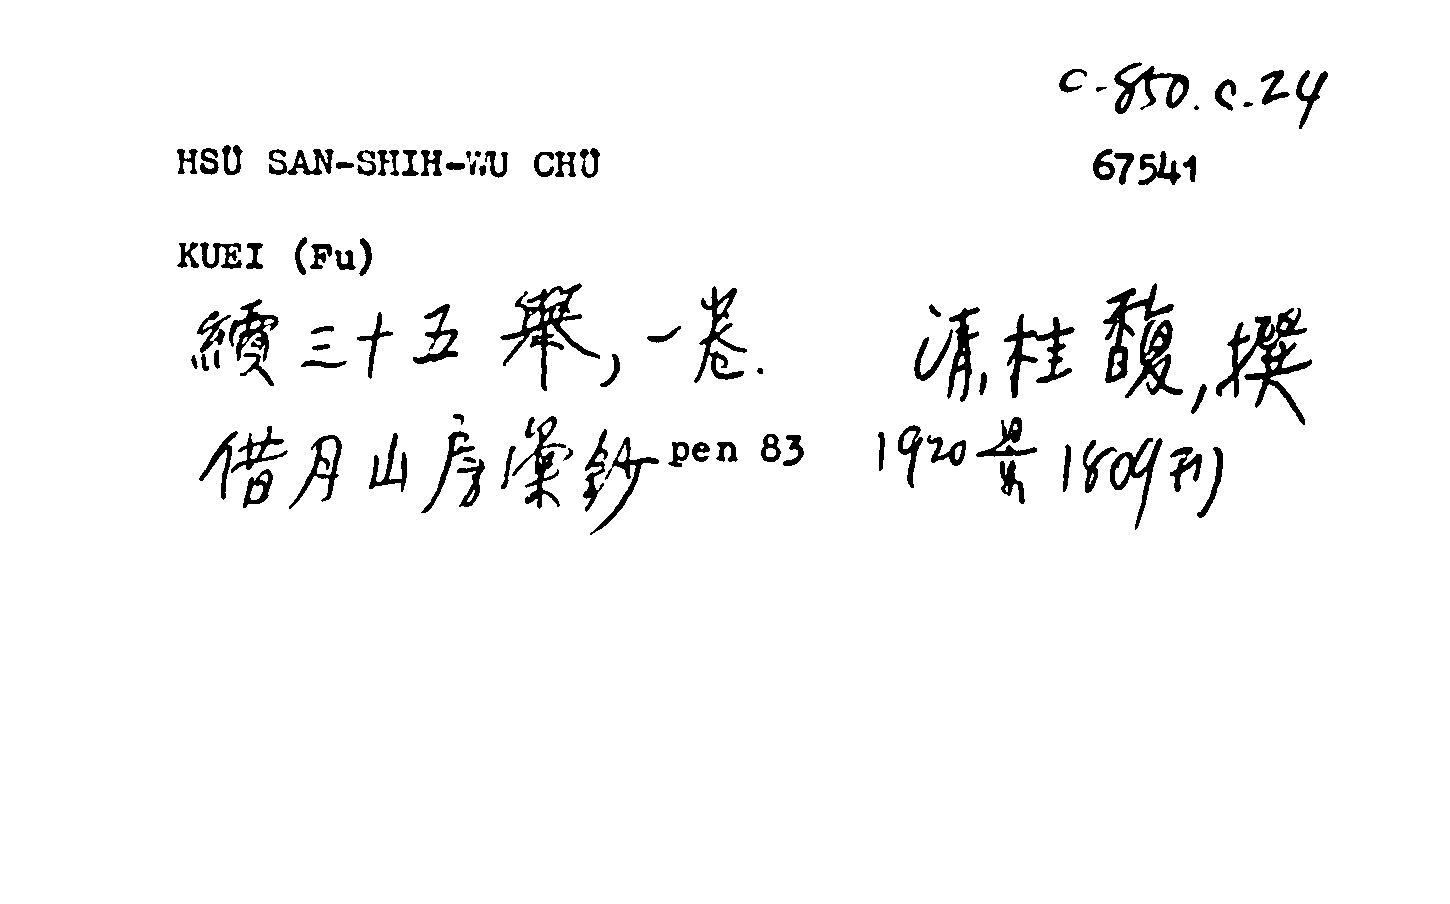 C-850.c.24
HSÜ SAN-SHIH-WU CHÜ
67541
KUEI (Fu)
續三十五舉,一卷. 清,桂馥,撰
借月山房彙鈔 pen 83 1920景1809刊